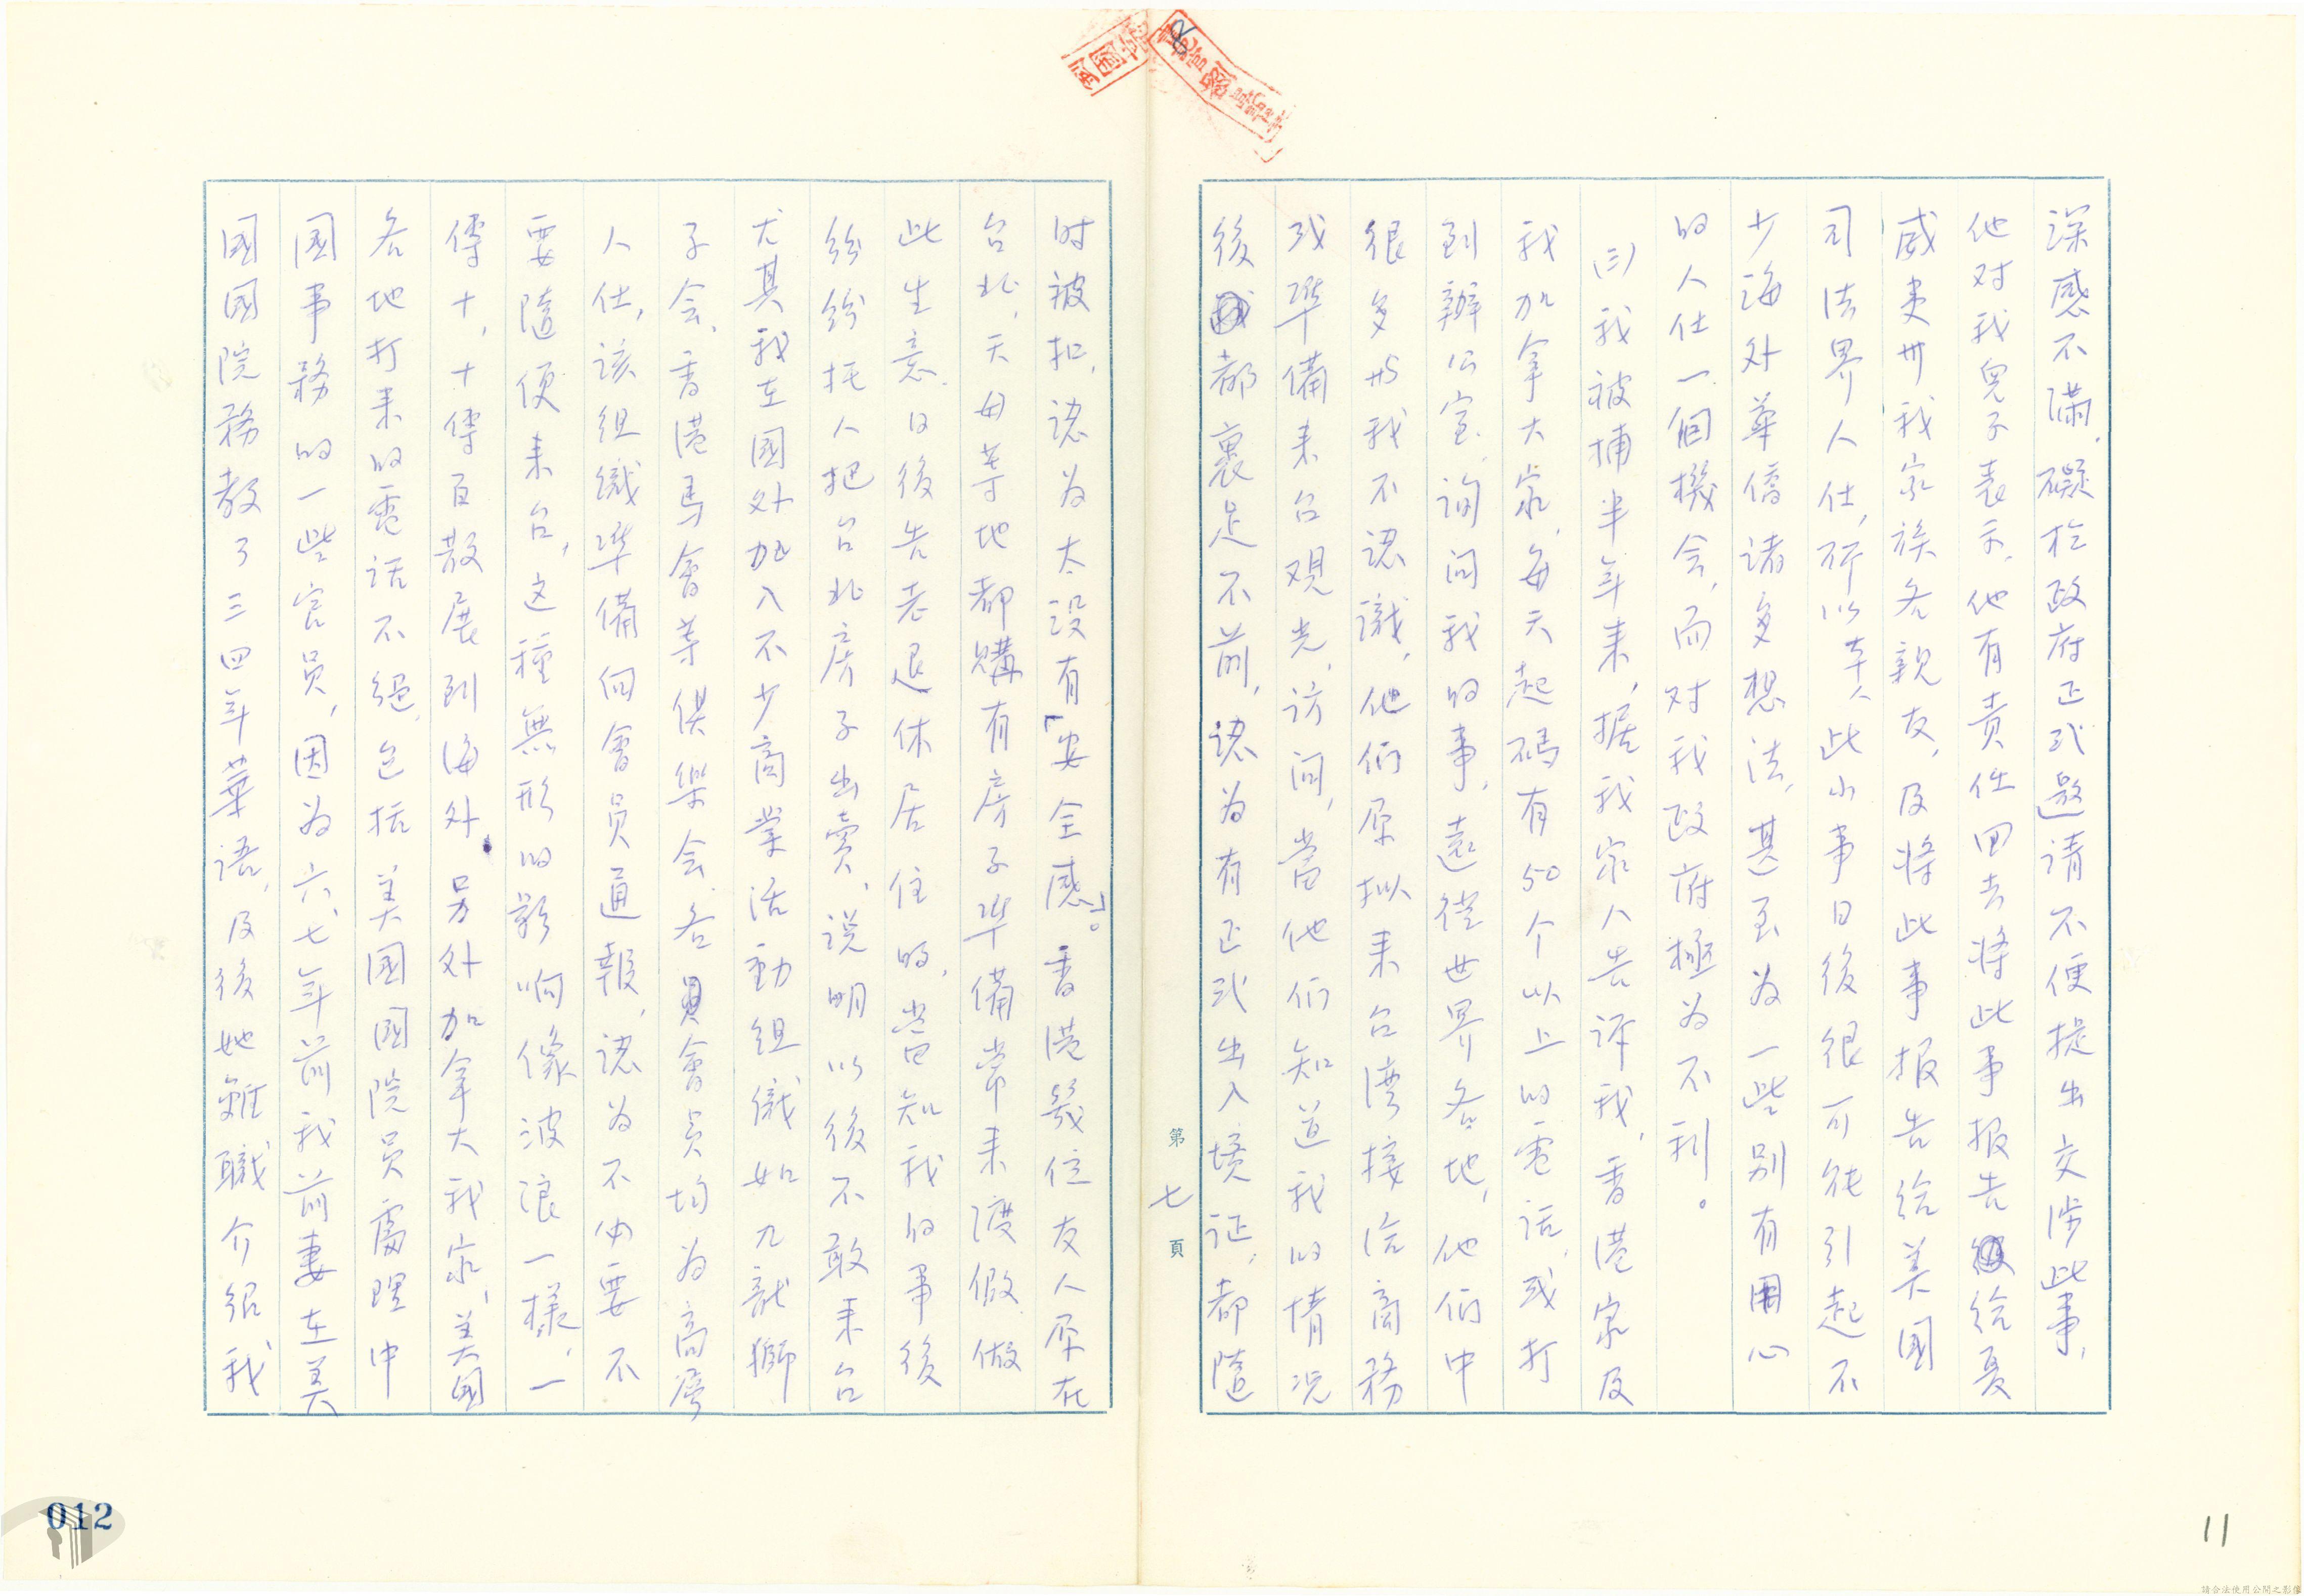 深感不满,礙於政府正式邀请不便提出交涉此事,
他对我兒子表示,他有责任回去将此事报告给夏
威夷卅我家族各親友,及将此事报告给美国
司法界人仕,所以本人此小事日後很可能引起不
少海外華僑诸多想法,甚至为一些别有用心
的人仕一個機会,而对我政府極为不利。
(三)我被捕半年来,据我家人告诉我,香港家及
我加拿大家,每天起码有50个以上的電话,或打
到辦公室,询问我的事,遠從世界各地,他们中
很多均我不認識,他们原拟来台湾接洽商務
或準備来台观光,访问,當他们知道我的情况
後都裹足不前,認为有正式出入境证,都隨
第七頁
时被扣,認为太没有「安全感」。香港幾位友人原在
台北,天母等地都購有房子準備常来渡假做
此生意,日後告老退休居住的,當知我的事後
紛紛托人把台北房子出賣,说明以後不敢来台
尤其我在國外加入不少商業活動組織如九龍獅
子会,香港馬會等俱樂会,各會員均为高層
人仕,该组織準備向會員通報,認为不必要不
要隨便来台,这種無形的影响像波浪一樣,一
傳十,十傳百散展到海外,另外加拿大我家,美國
各地打来的電话不絕,包括美國國院員處理中
國事務的一些官員,因为六、七年前我前妻在美
國國院務教了三四年華语,及後她離職介紹我
012
11
請合法使用公開之影像